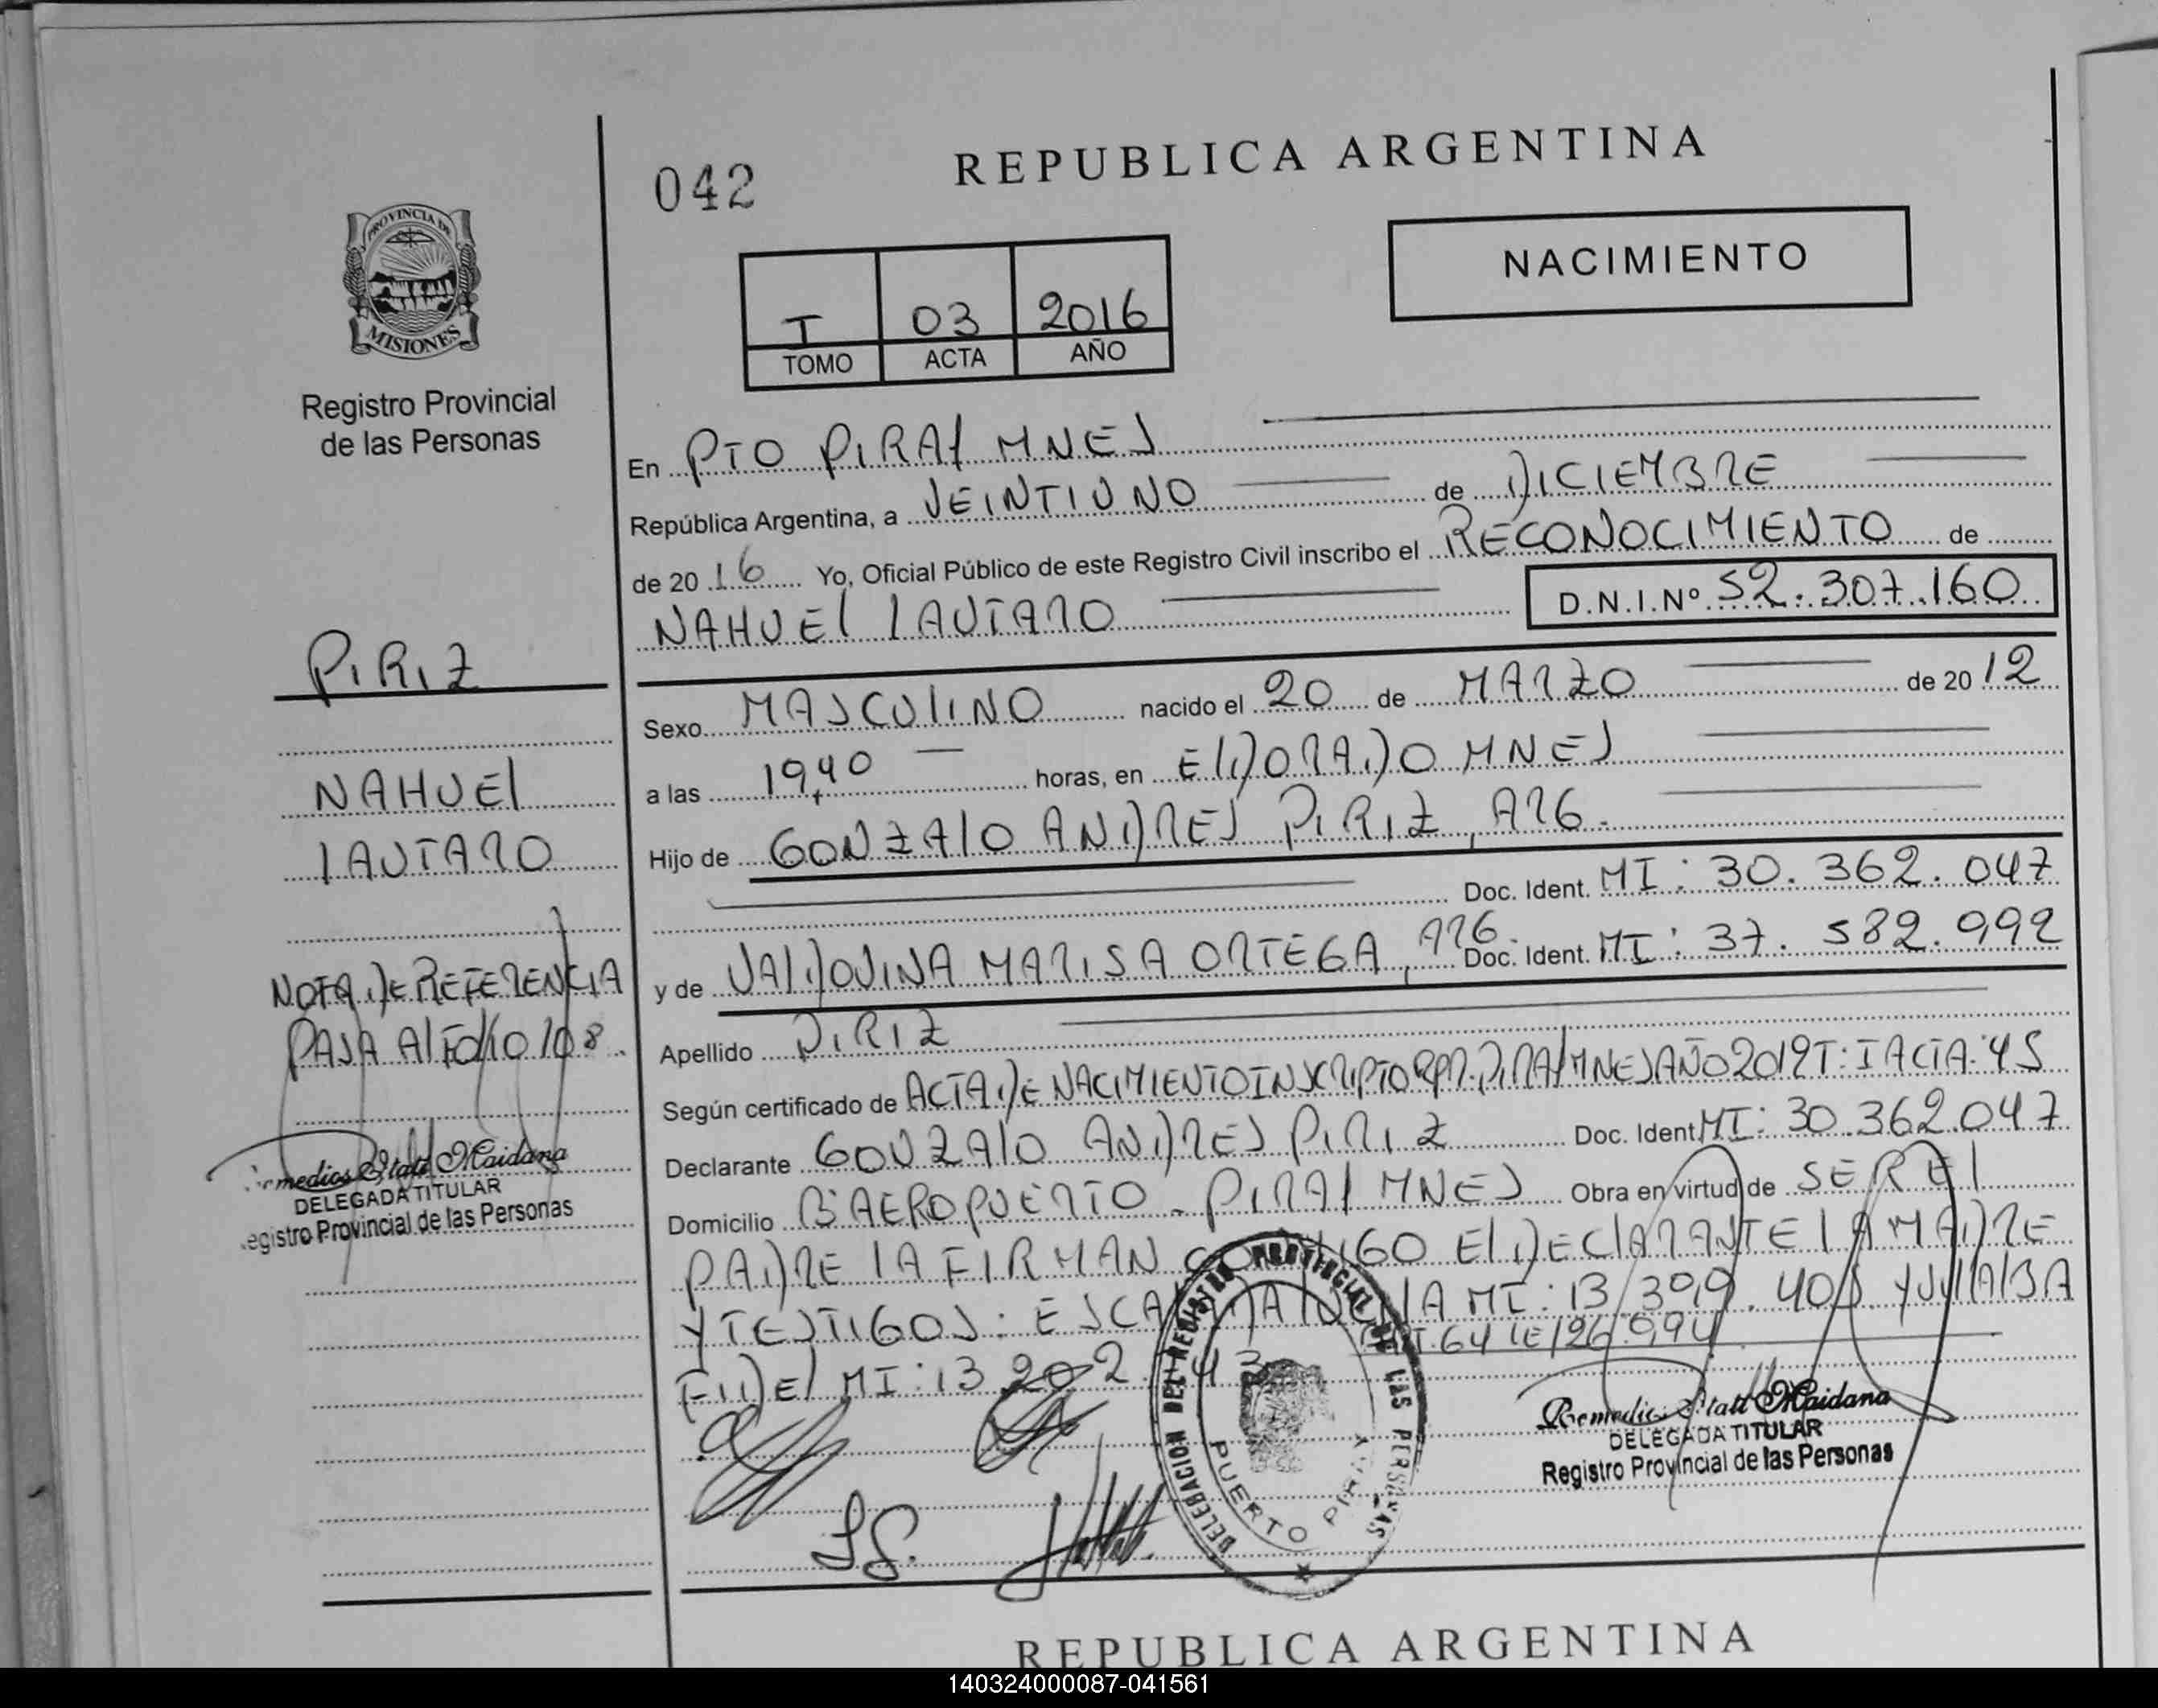 042
REPUBLICA ARGENTINA
NACIMIENTO
PROVINCIA DE
MISIONES
Registro Provincial
de las Personas
I 03 2016
TOMO ACTA AÑO
En PTO PIRAY MNES
República Argentina, a VEINTIUNO de DICIEMBRE
de 20 16 Yo, Oficial Público de este Registro Civil inscribo el RECONOCIMIENTO de
NAHUEL LAUTARO D.N.I.Nº 52.307.160
PIRIZ
NAHUEL
LAUTARO
NOTA DE REFERENCIA
PASA AL FOLIO 108.
Remedios Statt Maidana
DELEGADA TITULAR
egistro Provincial de las Personas
Sexo MASCULINO nacido el 20 de MARZO de 20 12
a las 19,40 horas, en ELDORADO MNES
Hijo de GONZALO ANDRES PIRIZ, ARG.
Doc. Ident. MI: 30.362.047
y de VALDOVINA MARISA ORTEGA, ARG. Doc. Ident. MI: 37.582.992
Apellido PIRIZ
Según certificado de ACTA DE NACIMIENTO INSCRIPTO RPP. PIRAY MNES AÑO 2012 T: I ACTA: 45
Declarante GONZALO ANDRES PIRIZ Doc. Ident. MI: 30.362.047
Domicilio Bº AEROPUERTO - PIRAY MNES Obra en virtud de SER EL
PADRE LA FIRMAN CONMIGO EL DECLARANTE LA MADRE
Y TESTIGOS: MI: 13.309.405 Y VILLALBA
FIDEL MI: 13.202. 43 ART. 64 LE/26.994
DELEGACION DEL REGISTRO PROVINCIAL DE LAS PERSONAS
PUERTO PIRAY
Remedios Statt Maidana
DELEGADA TITULAR
Registro Provincial de las Personas
REPUBLICA ARGENTINA
140324000087-041561